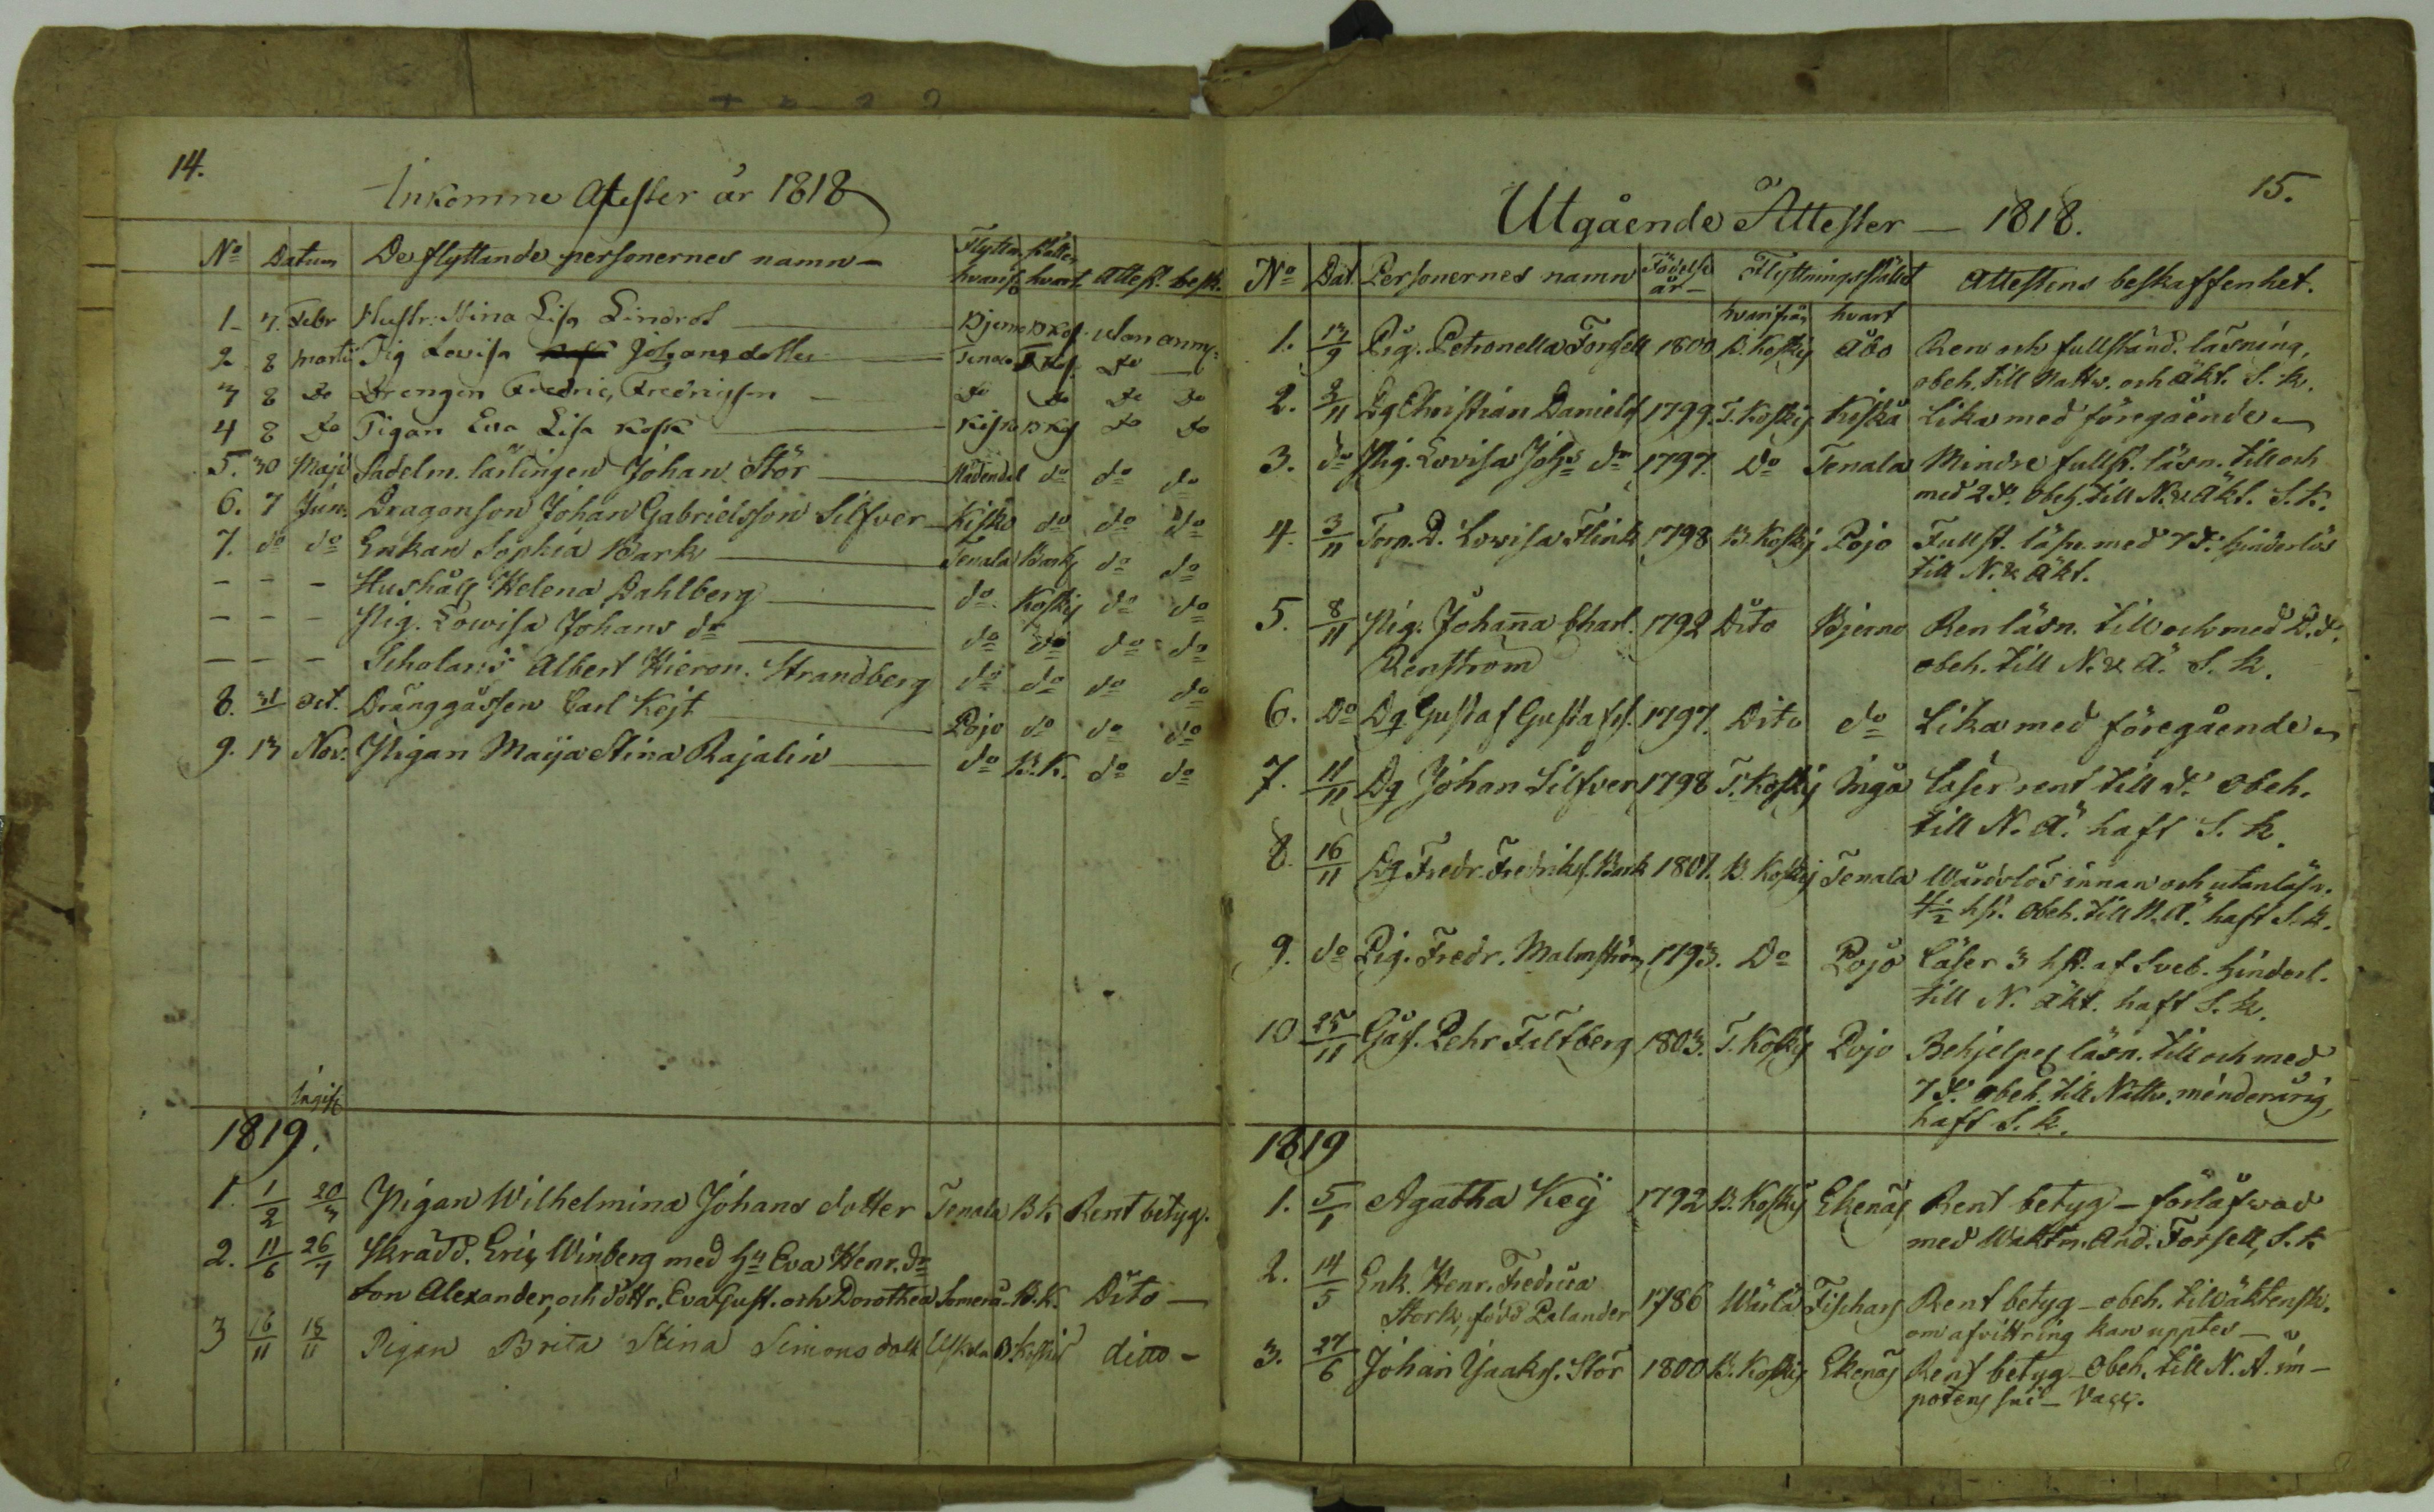 14.
Inkomne Attester år 1818
No Datum De flyttande personernes namn Flyttn. ställen
hvarifr. hvart Attest. besk.
1 7. Febr Hustr. Stina Lisa Lindrot Bjerno BKos. utan anm.
2 8 Martii Pig Lovisa Johansdotter Tenala TKos. Do
3 8 Do Drengen Fredric Fredricsson Do Do Do Do
4 8 Do Pigan Eva Lisa Kosk Kisko BKos Do Do
5. 30 Maji Sadelm. lärlingen Johan Stör Nådendal do do do
6. 7 Jun. Dragonson Johan Gabrielsson Silfver Kisko do do do
7. do do Enkan Sophia Bark Tenala do do
- - - Hushåll Helena Dahlberg do. Koskis do do
- - - Pig. Lowisa Johans dr do do do do
- - - Scholaris Albert Hieron. Strandberg do do do do
8. 31 Oct. Dränggåssen Carl Kejt Pojo do do do
9. 13 Nov. Pigan Maija Stina Rajalin do B.K. do do
Ingift
1819.
1. 1/2 20/3 Pigan Wilhelmina Johans dotter Tenala BK Rent betyg.
2. 11/6 26/7 Skrädd. Eric Winberg med hu Eva Henr. dr
Son Alexander, och döttr. Eva Gust. och Dorothea Somerå B.K. Dito
3 16/11 18/11 Pigan Brita Stina Simons dott Uskela B.Koskis ditto
15.
Utgående Attester 1818.
No Dat. Personernes namn Födelse år Flyttningsstället Attestens beskaffenhet.
hvarifrån hvart
1. 17/9 Pig. Petronella Forssell 1800 B. Koskis Åbo Ren och fullständ. läsning,
obeh. till Nattv. och äkt. S. k.
2. 2/11 Dg Christian Daniels 1799. T. Koskis Kisko Lika med föregående
3. do Pig. Lovisa Johs dr 1797. Do Tenala Mindre fullst. läsn. till och
med 2 obeh. till N. & Äkt. S. k.
4. 3/11 Torp. D. Lovisa Flink 1798 B. Koskis Pojo Fullst. läsn. med 7 hinderlös
till N. & Äkt.
5. 8/11 Pig. Johanna Charl. 1792 Dito Bjerno Ren läsn. till och med
Renström obeh. till N. & Ä. S. k.
6. Do Dg Gustaf Gustafss. 1797. Dito do Lika med föregående
7. 11/11 Dg Johan Silfver 1798 T. Koskis Ingå Läser rent till obeh.
till N. Ä. haft S. k.
8. 16/11 Dg Fredr. Fredrikss. Bark 1801. B. Koskis Tenala Wårdslös innan och utanläsn.
4½ hst. Obeh. till N. Ä. haft S. k.
9. do Pig. Fredr. Malmström 1793. Do Pojo Läser 3 hst. af Sveb. hinderl.
till N. Äkt. haft S. k.
10 25/11 Gås. Pehr Fältberg 1803. T. Koskis Pojo Behjelpel. läsn. till och med
7 obeh. till Nattv. minderårig,
haft S. k.
1819
1. 5/1 Agatha Keÿ 1792 B. Koskis Ekenäs Rent betyg – förlåfwad
med Waktm. And. Forsell, S. k
2. 14/5 Enk. Henr. Fredrica
Stork, född Palander 1786 Wärlå Fischars Rent betyg – obeh. till äktensk.
om afvittring kan upptes
3. 27/6 Johan Isaaks. Stör 1800 B. Koskis Ekenäs Rent betyg – Obeh. till N. A. im-
potens sui – Vacc.